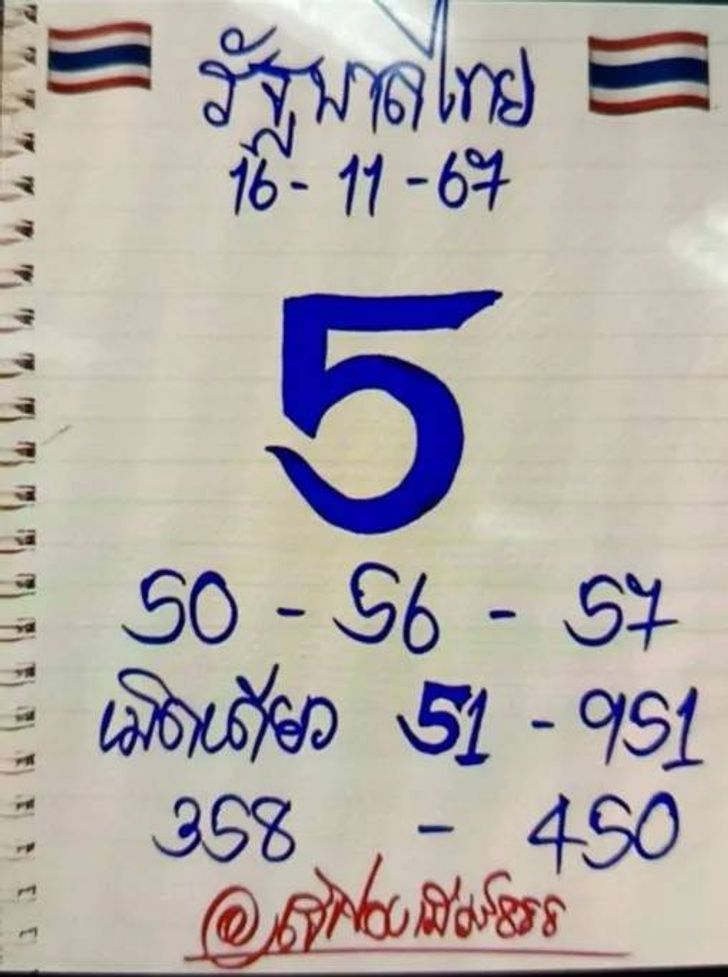 รัฐบาลไทย
16 - 11 - 67
5
50 - 56 - 57
เม็ดเดียว 51 - 951
358 - 450